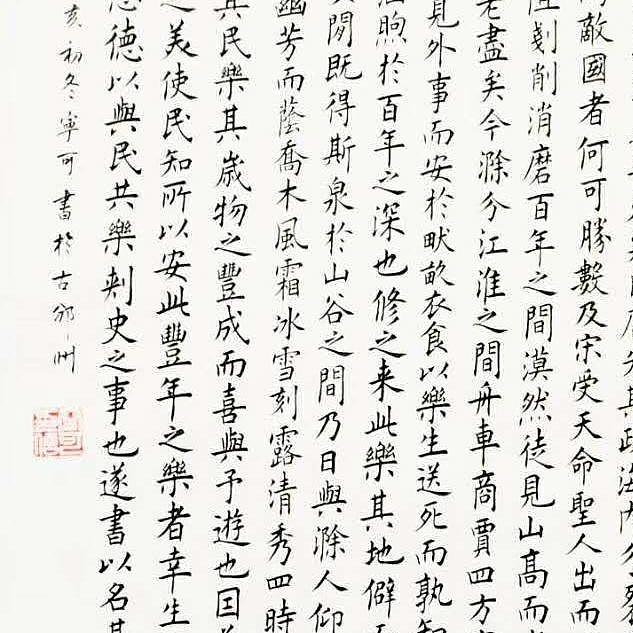 失其政海內分裂
敵國者何可勝數及宋受天命聖人出而
剗削消磨百年之間漠然徒見山高而
老盡矣今滁介江淮之間舟車商賈四方
見外事而安於畎畝衣食以樂生送死而孰知
煦於百年之深也修之来此樂其地僻而
閒既得斯泉於山谷之間乃日與滁人仰
幽芳而蔭喬木風霜冰雪刻露清秀四時
其民樂其歲物之豐成而喜與予遊也因
之美使民知所以安此豐年之樂者幸生
恩德以與民共樂刺史之事也遂書以名其
亥初冬寧可書於古州